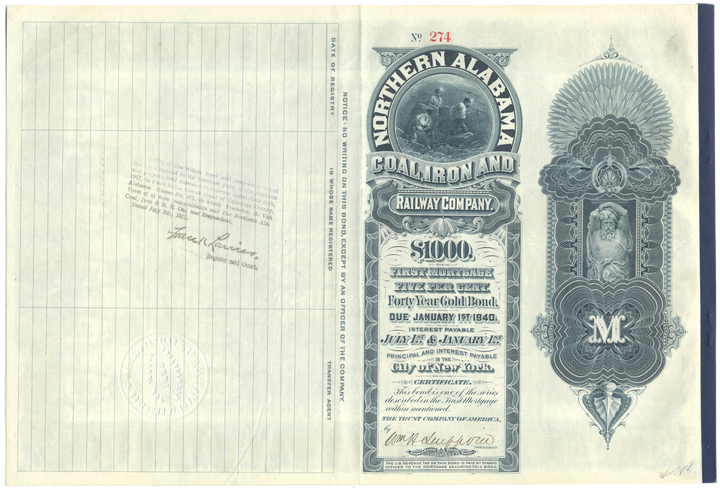 DATE OF REGISTRY
IN WHOSE NAME REGISTERED
TRANSFER AGENT
NOTICE: NO WRITING ON THIS BOND, EXCEPT BY AN OFFICER OF THE COMPANY.
Register said Court.
No 274
NORTHERN ALABAMA
COAL, IRON AND
RAILWAY COMPANY.
$1000.
FIRST MORTGAGE
FIVE PER CENT.
Forty Year Gold Bond,
DUE JANUARY 1ST 1940.
INTEREST PAYABLE
JULY 1ST & JANUARY 1ST
PRINCIPAL AND INTEREST PAYABLE
IN THE
City of New York.
CERTIFICATE.
This bond is one of the series
described in the Trust Mortgage
within mentioned.
THE TRUST COMPANY OF AMERICA,
by
THE U.S. REVENUE TAX ON THIS BOND IS PAID BY STAMPS
AFFIXED TO THE MORTGAGE SECURING THIS BOND
M